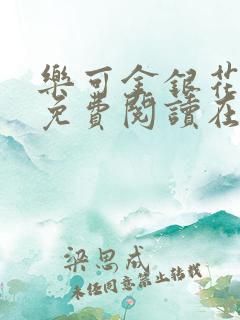 樂可金銀花
免費閱讀在
梁思成
未經同意禁止轉載